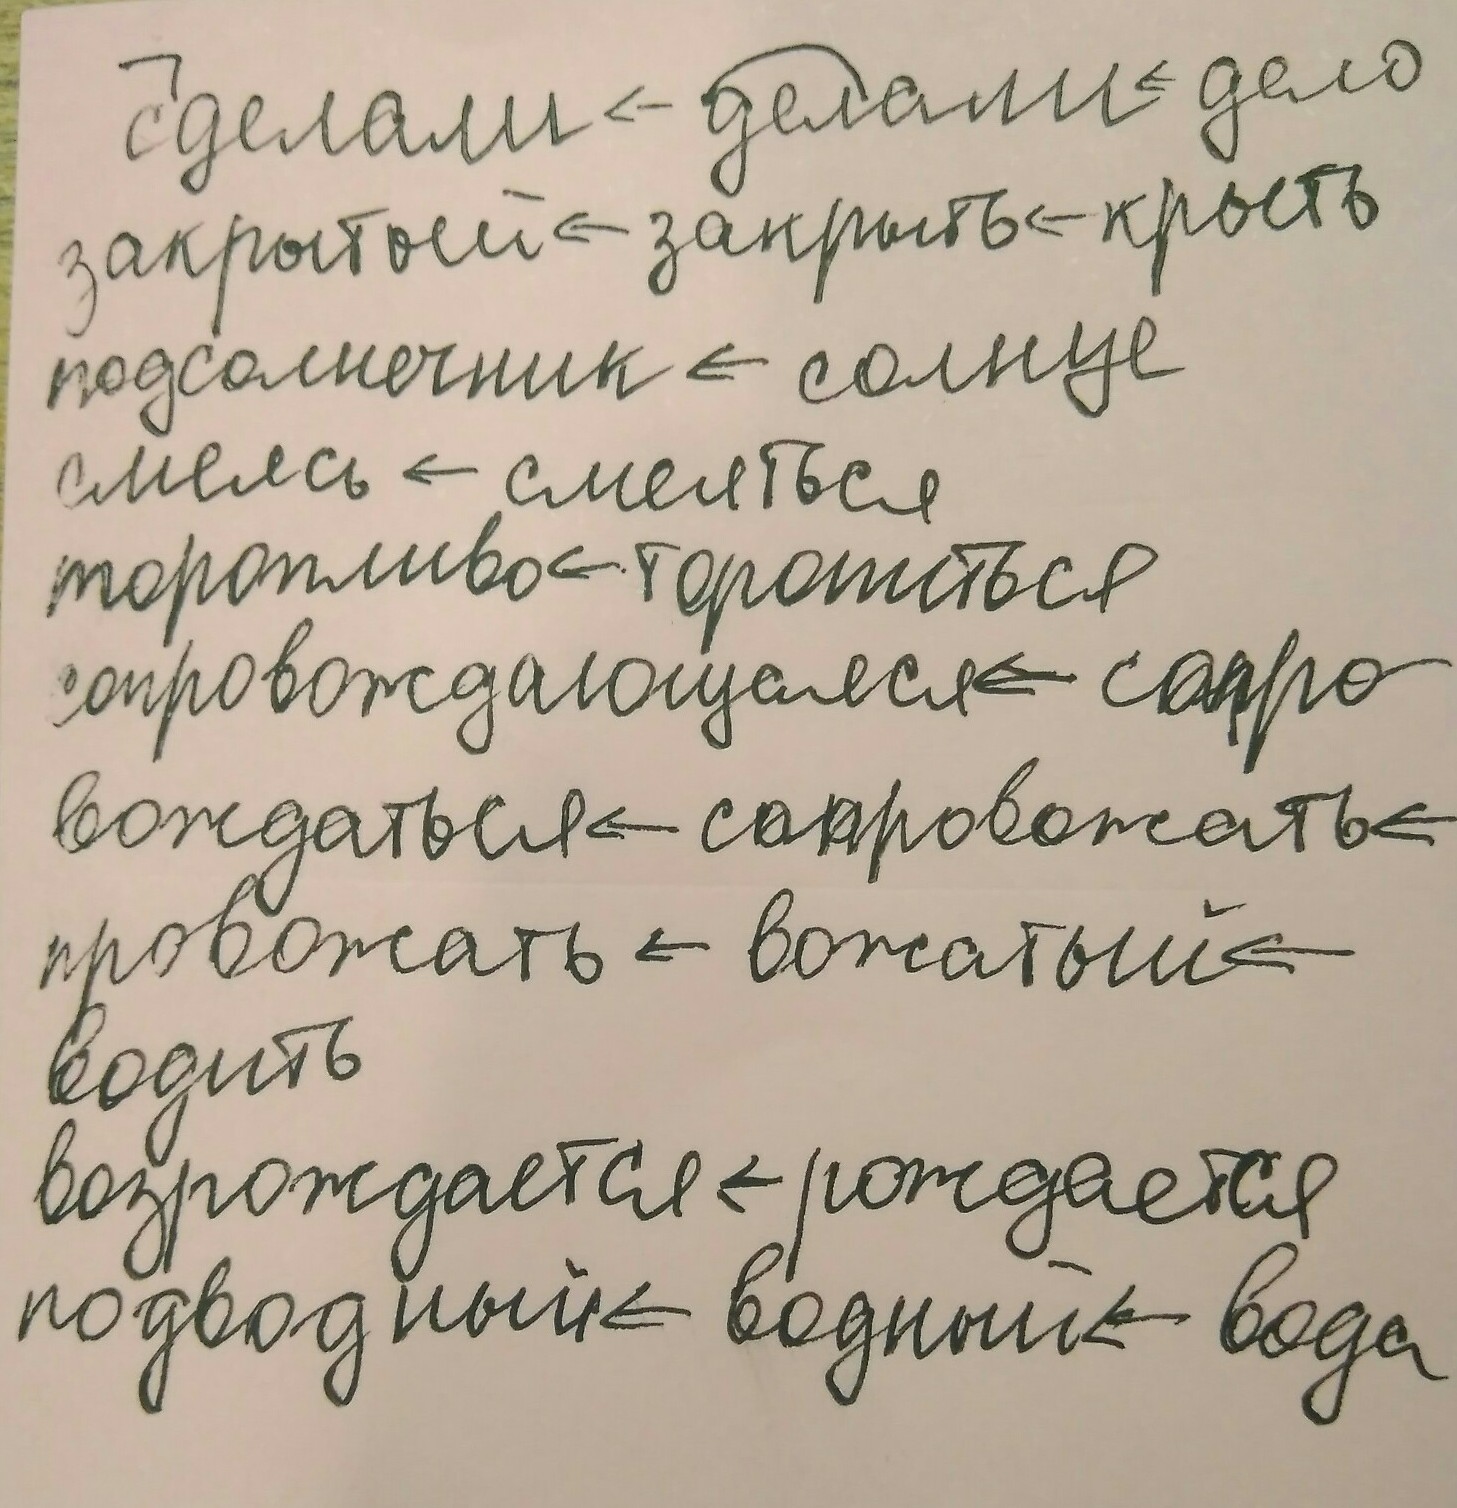 сделали ← делали ← дело
закрытый ← закрыть ← крыть
подсолнечник ← солнце
смеясь ← смеяться
торопливо ← торопиться
сопровождающаяся ← сопро-
вождаться ← сопровожать ←
провожать ← вожатый ←
водить
возрождается ← рождается
подводный ← водный ← вода